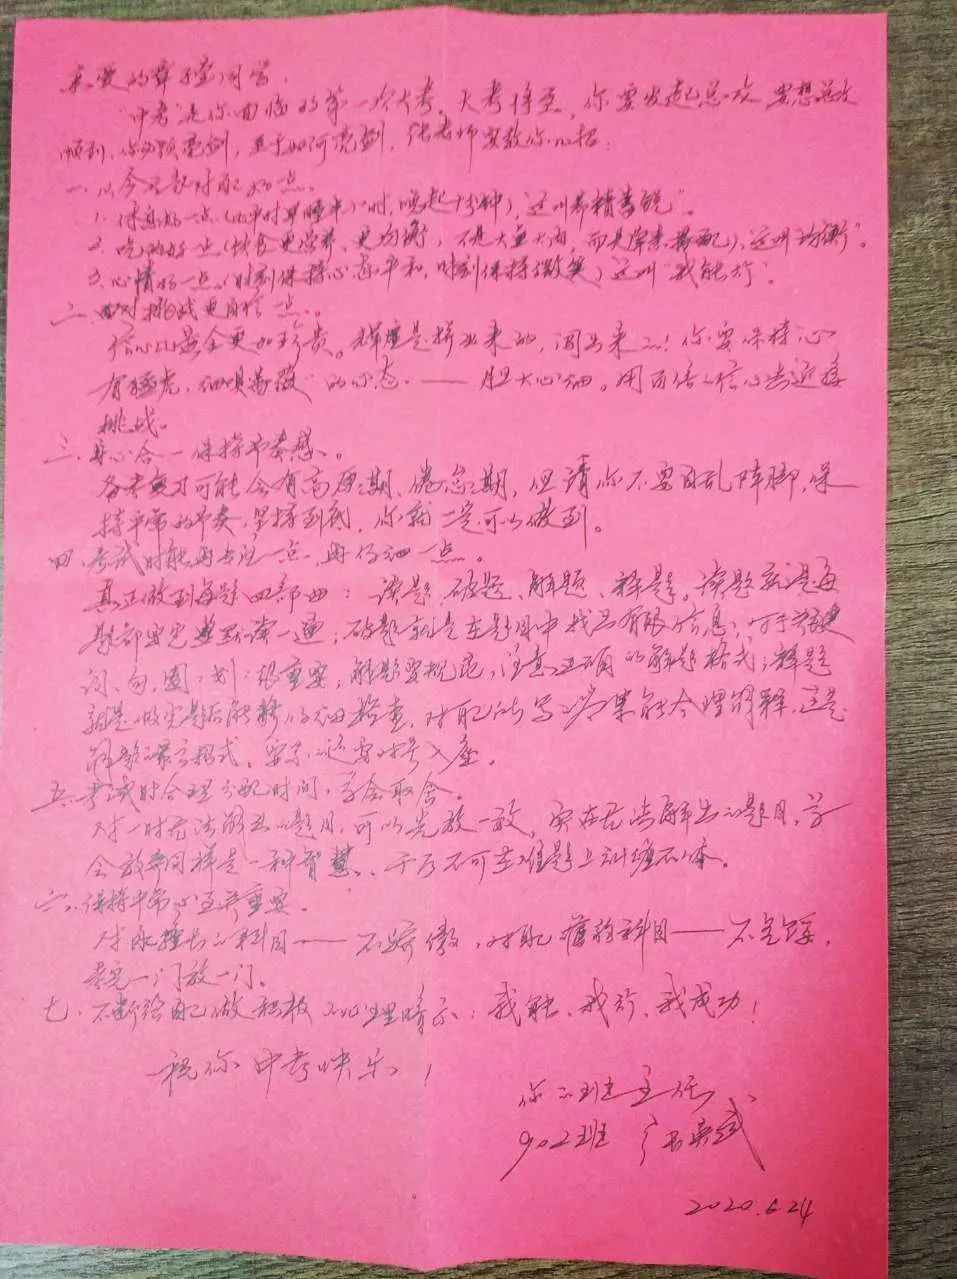 亲爱的章 同学：
“中考”是你面临的第一次大考，大考将至，你要发起总攻，要想总攻
顺利，你必须亮剑，至于如何亮剑，张老师要教你几招：
一、从今天起对自己好一点。
1. 休息好一点（比平时早睡半小时，晚起十分钟），这叫“养精蓄锐”。
2. 吃的好一点（饮食更营养、更均衡，不是大鱼大肉，而是荤素搭配），这叫“均衡”。
3. 心情好一点（时刻保持心态平和，时刻保持微笑）这叫“我能行”。
二、面对挑战更自信一点。
信心比黄金更加珍贵。辉煌是拼出来的，闯出来的！你要保持“心
有猛虎，细嗅蔷薇”的心态——胆大心细。用百倍的信心去迎接
挑战。
三、身心合一保持节奏感。
备考复习可能会有高原期、倦怠期，但请你不要自乱阵脚，保
持平常的节奏，坚持到底，你就一定可以做到。
四、考试时能再专注一点，再仔细一点。
真正做到每题四部曲：读题、破题、解题、释题。读题就是每
题都要完整默读一遍；破题就是在题目中找出有限信息，对于关键
词、句，圈、划很重要，解题要规范，注意正确的解题格式；释题
就是做完题后能够仔细检查，对自己所写的答案能合理解释，这是
解题 格式，要 对号入座。
五、考试时合理分配时间，学会取舍。
对一时无法解出的题目，可以先放一放，实在无法解出的题目，学
会放弃同样是一种智慧，千万不可在难题上纠缠不休。
六、保持平常心至关重要。
对自己擅长的科目——不骄傲，对自己薄弱科目——不气馁，
考完一门放一门。
七、不断给自己做积极的心理暗示：我能、我行、我成功！
祝你中考快乐！
你的班主任
902班 张 武
2020.6.24